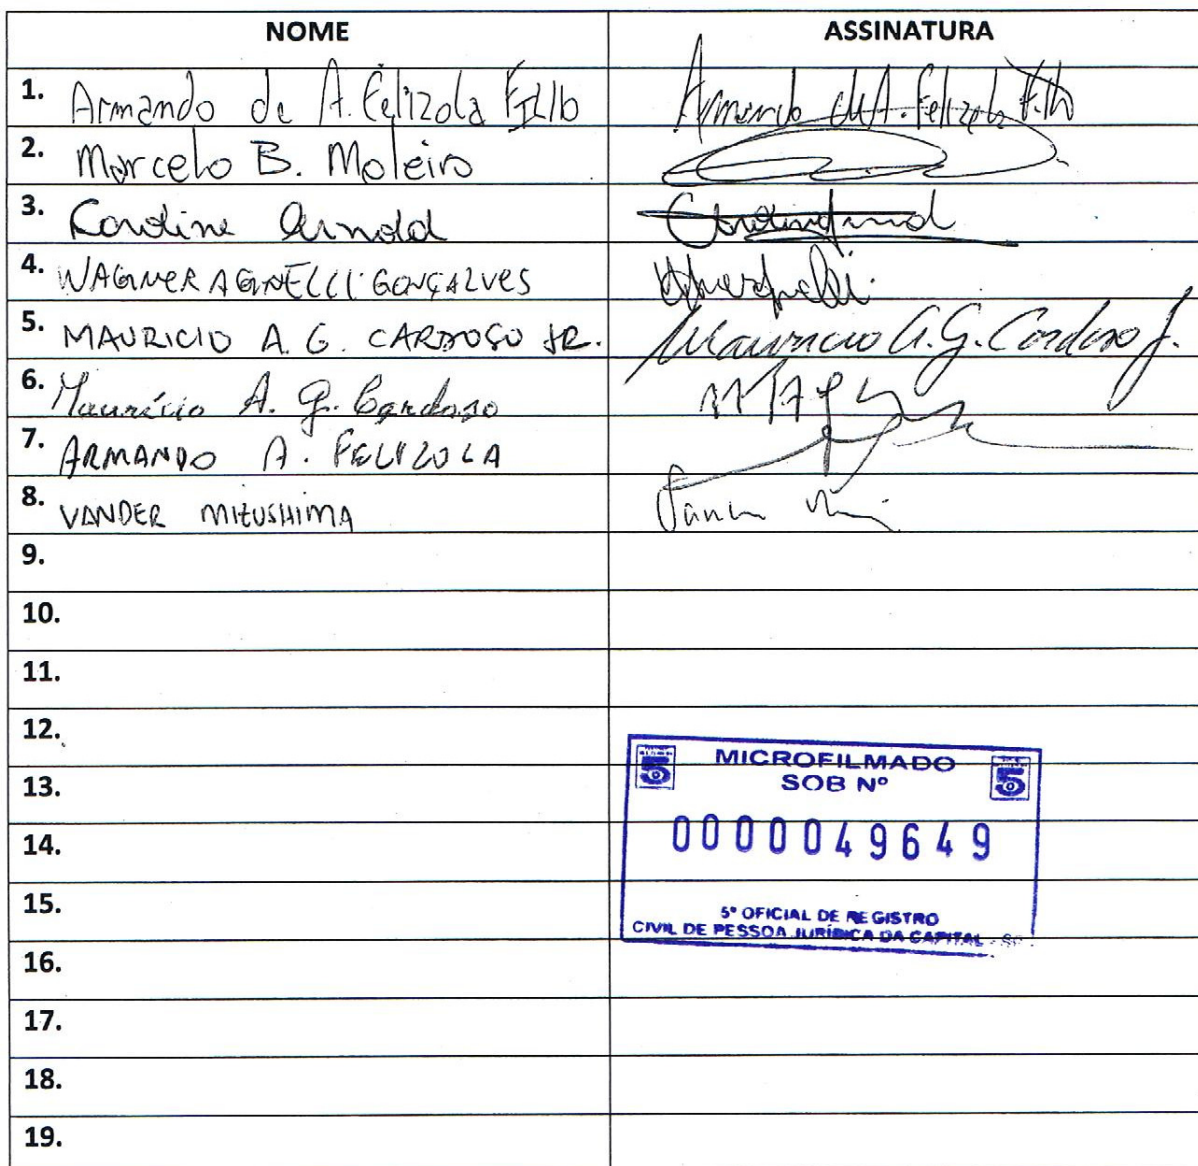 NOME ASSINATURA
1. Armando de A. Felizola Filho Armando de A. Felizola Filho
2. Marcelo B. Moleiro
3. Caroline Arnold
4. WAGNER AGNELLI GONÇALVES
5. MAURICIO A. G. CARDOSO JR. Mauricio A. G. Cardoso Jr.
6. Maurício A. G. Cardoso
7. ARMANDO A. FELIZOLA
8. VANDER MITUSHIMA
9.
10.
11.
12.
13.
14.
15.
16.
17.
18.
19.
5 MICROFILMADO 5
SOB Nº
0000049649
5º OFICIAL DE REGISTRO
CIVIL DE PESSOA JURÍDICA DA CAPITAL - SP